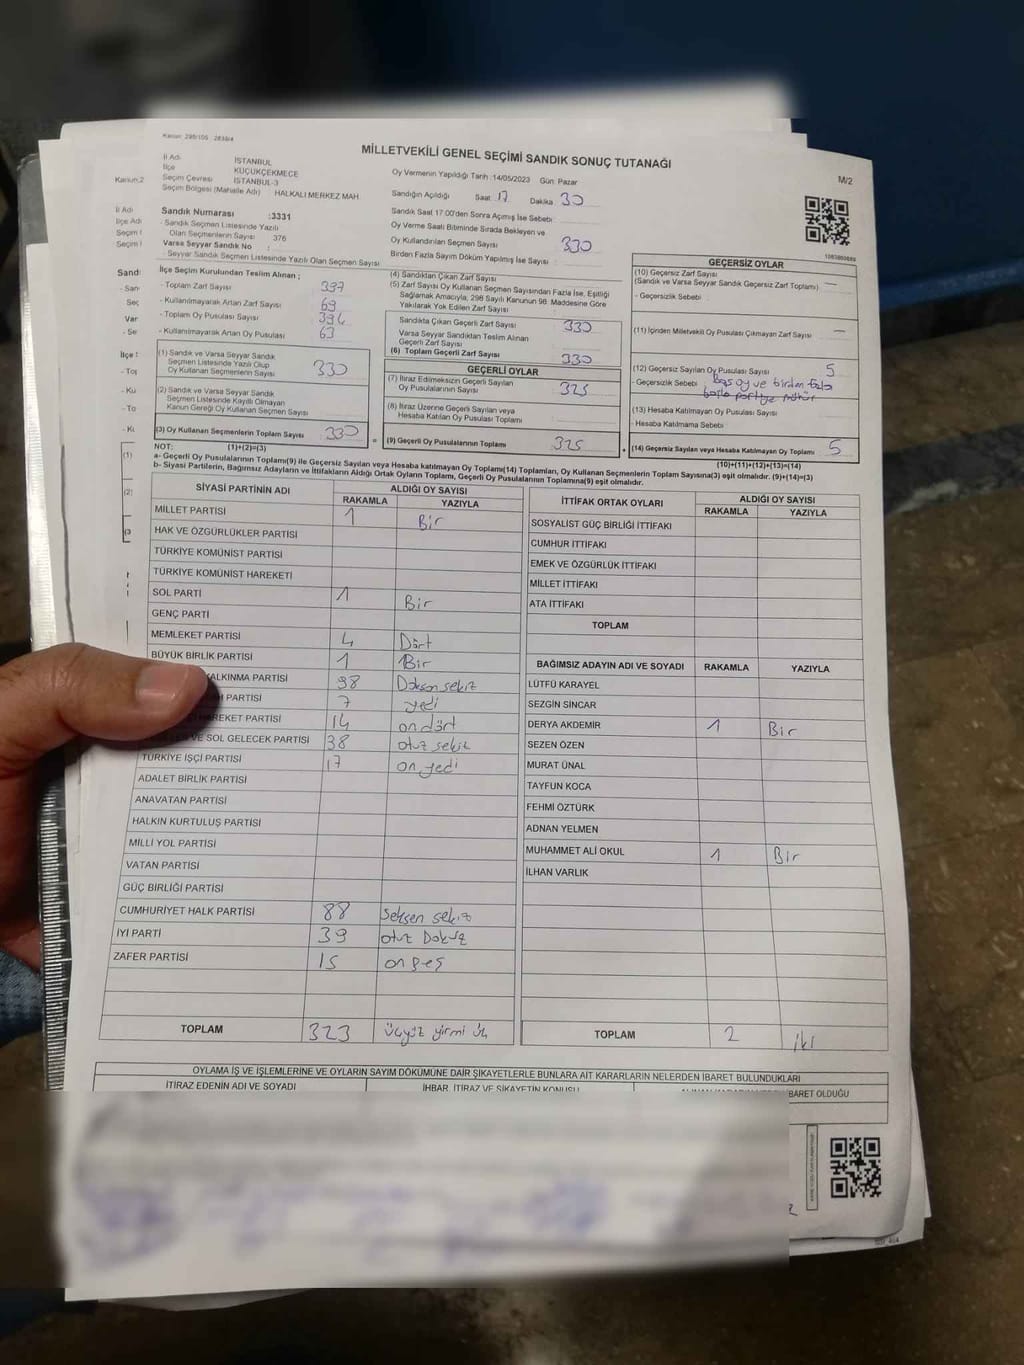 Kanun: 298/105 2839/4
MİLLETVEKİLİ GENEL SEÇİMİ SANDIK SONUÇ TUTANAĞI
M/2
İl Adı İSTANBUL
İlçe KÜÇÜKÇEKMECE
Seçim Çevresi İSTANBUL-3
Seçim Bölgesi (Mahalle Adı) HALKALI MERKEZ MAH
Oy Vermenin Yapıldığı Tarih :14/05/2023 Gün: Pazar
Sandığın Açıldığı Saat 17 Dakika 30
Sandık Saat 17:00'den Sonra Açmış İse Sebebi
Oy Verme Saati Bitiminde Sırada Bekleyen ve
Oy Kullandırılan Seçmen Sayısı 330
Birden Fazla Sayım Döküm Yapılmış İse Sayısı :
Sandık Numarası :3331
- Sandık Seçmen Listesinde Yazılı
Olan Seçmenlerin Sayısı 376
Varsa Seyyar Sandık No :
Seyyar Sandık Seçmen Listesinde Yazılı Olan Seçmen Sayısı
İlçe Seçim Kurulundan Teslim Alınan ;
- Toplam Zarf Sayısı 397
- Kullanılmayarak Artan Zarf Sayısı 69
- Toplam Oy Pusulası Sayısı 394
- Kullanılmayarak Artan Oy Pusulası 63
(1) Sandık ve Varsa Seyyar Sandık
Seçmen Listesinde Yazılı Olup
Oy Kullanan Seçmenlerin Sayısı 330
(2) Sandık ve Varsa Seyyar Sandık
Seçmen Listesinde Kayıtlı Olmayan
Kanun Gereği Oy Kullanan Seçmen Sayısı
(3) Oy Kullanan Seçmenlerin Toplam Sayısı 330
(4) Sandıktan Çıkan Zarf Sayısı
(5) Zarf Sayısı Oy Kullanan Seçmen Sayısından Fazla İse, Eşitliği
Sağlamak Amacıyla, 298 Sayılı Kanunun 98. Maddesine Göre
Yakılarak Yok Edilen Zarf Sayısı
Sandıkta Çıkan Geçerli Zarf Sayısı 330
Varsa Seyyar Sandıktan Teslim Alınan
Geçerli Zarf Sayısı
(6) Toplam Geçerli Zarf Sayısı 330
GEÇERLİ OYLAR
(7) İtiraz Edilmeksizin Geçerli Sayılan
Oy Pusulalarının Sayısı 325
(8) İtiraz Üzerine Geçerli Sayılan veya
Hesaba Katılan Oy Pusulası Toplamı
(9) Geçerli Oy Pusulalarının Toplamı 325
GEÇERSİZ OYLAR
(10) Geçersiz Zarf Sayısı
(Sandık ve Varsa Seyyar Sandık Geçersiz Zarf Toplamı) —
- Geçersizlik Sebebi
(11) İçinden Milletvekili Oy Pusulası Çıkmayan Zarf Sayısı —
(12) Geçersiz Sayılan Oy Pusulası Sayısı 5
- Geçersizlik Sebebi Boş oy ve birden fazla
partiye mühür
(13) Hesaba Katılmayan Oy Pusulası Sayısı
- Hesaba Katılmama Sebebi
(14) Geçersiz Sayılan veya Hesaba Katılmayan Oy Toplamı 5
NOT: (1)+(2)=(3) (10)+(11)+(12)+(13)=(14)
a- Geçerli Oy Pusulalarının Toplamı(9) ile Geçersiz Sayılan veya Hesaba katılmayan Oy Toplamı(14) Toplamları, Oy Kullanan Seçmenlerin Toplam Sayısına(3) eşit olmalıdır. (9)+(14)=(3)
b- Siyasi Partilerin, Bağımsız Adayların ve İttifakların Aldığı Ortak Oyların Toplamı, Geçerli Oy Pusulalarının Toplamına(9) eşit olmalıdır.
SİYASİ PARTİNİN ADI ALDIĞI OY SAYISI
RAKAMLA YAZIYLA
MİLLET PARTİSİ 1 Bir
HAK VE ÖZGÜRLÜKLER PARTİSİ
TÜRKİYE KOMÜNİST PARTİSİ
TÜRKİYE KOMÜNİST HAREKETİ
SOL PARTİ 1 Bir
GENÇ PARTİ
MEMLEKET PARTİSİ 4 Dört
BÜYÜK BİRLİK PARTİSİ 1 Bir
ALKINMA PARTİSİ 98 Doksan sekiz
H PARTİSİ 7 yedi
HAREKET PARTİSİ 14 on dört
VE SOL GELECEK PARTİSİ 38 otuz sekiz
TÜRKİYE İŞÇİ PARTİSİ 17 on yedi
ADALET BİRLİK PARTİSİ
ANAVATAN PARTİSİ
HALKIN KURTULUŞ PARTİSİ
MİLLİ YOL PARTİSİ
VATAN PARTİSİ
GÜÇ BİRLİĞİ PARTİSİ
CUMHURİYET HALK PARTİSİ 88 Seksen sekiz
İYİ PARTİ 39 otuz Dokuz
ZAFER PARTİSİ 15 on beş
TOPLAM 323 üçyüz yirmi üç
İTTİFAK ORTAK OYLARI ALDIĞI OY SAYISI
RAKAMLA YAZIYLA
SOSYALİST GÜÇ BİRLİĞİ İTTİFAKI
CUMHUR İTTİFAKI
EMEK VE ÖZGÜRLÜK İTTİFAKI
MİLLET İTTİFAKI
ATA İTTİFAKI
TOPLAM
BAĞIMSIZ ADAYIN ADI VE SOYADI RAKAMLA YAZIYLA
LÜTFÜ KARAYEL
SEZGİN SİNCAR
DERYA AKDEMİR 1 Bir
SEZEN ÖZEN
MURAT ÜNAL
TAYFUN KOCA
FEHMİ ÖZTÜRK
ADNAN YELMEN
MUHAMMET ALİ OKUL 1 Bir
İLHAN VARLIK
TOPLAM 2 iki
OYLAMA İŞ VE İŞLEMLERİNE VE OYLARIN SAYIM DÖKÜMÜNE DAİR ŞİKAYETLERLE BUNLARA AİT KARARLARIN NELERDEN İBARET BULUNDUKLARI
İTİRAZ EDENİN ADI VE SOYADI İHBAR, İTİRAZ VE ŞİKAYETİN KONUSU İBARET OLDUĞU